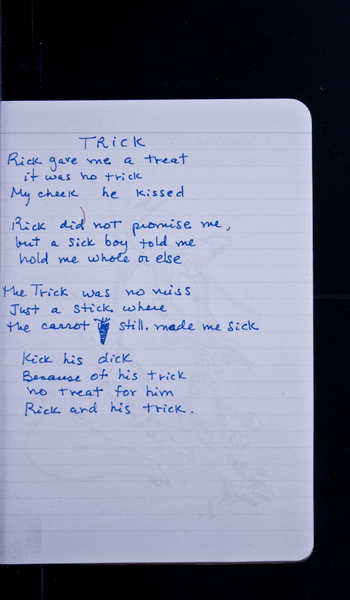 TRICK
Rick gave me a treat
it was no trick
My cheek he kissed
Rick did not promise me,
but a sick boy told me
hold me whole or else
the Trick was no miss
Just a stick where
the carrot still. made me sick
Kick his dick
Because of his trick
no treat for him
Rick and his trick.